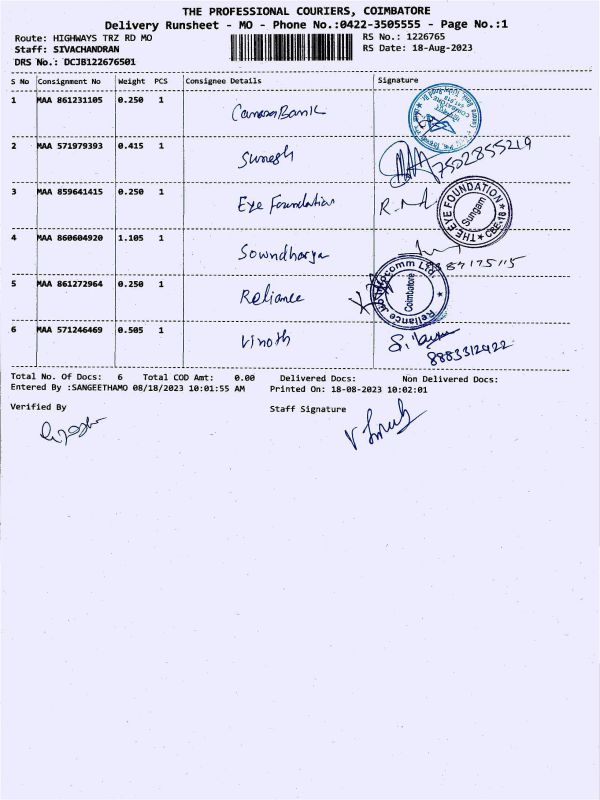 THE PROFESSIONAL COURIERS, COIMBATORE
Delivery Runsheet - MO - Phone No.:0422-3505555 - Page No.:1
Route: HIGHWAYS TRZ RD MO RS No.: 1226765
Staff: SIVACHANDRAN RS Date: 18-Aug-2023
DRS No.: DCJB122676501
S No Consignment No Weight PCS Consignee Details Signature
1 MAA 861231105 0.250 1 Canara Bank
2 MAA 571979393 0.415 1 Suresh 7502855219
3 MAA 859641415 0.250 1 Eye Foundation
THE EYE FOUNDATION
Sungam
CBE-18
4 MAA 860604920 1.105 1 Sowndharya
5 MAA 861272964 0.250 1 Reliance
Reliance Jio Infocomm Ltd.
Coimbatore
6 MAA 571246469 0.505 1 Vinoth
8883312422
Total No. Of Docs: 6 Total COD Amt: 0.00 Delivered Docs: Non Delivered Docs:
Entered By :SANGEETHAMO 08/18/2023 10:01:55 AM Printed On: 18-08-2023 10:02:01
Verified By Staff Signature